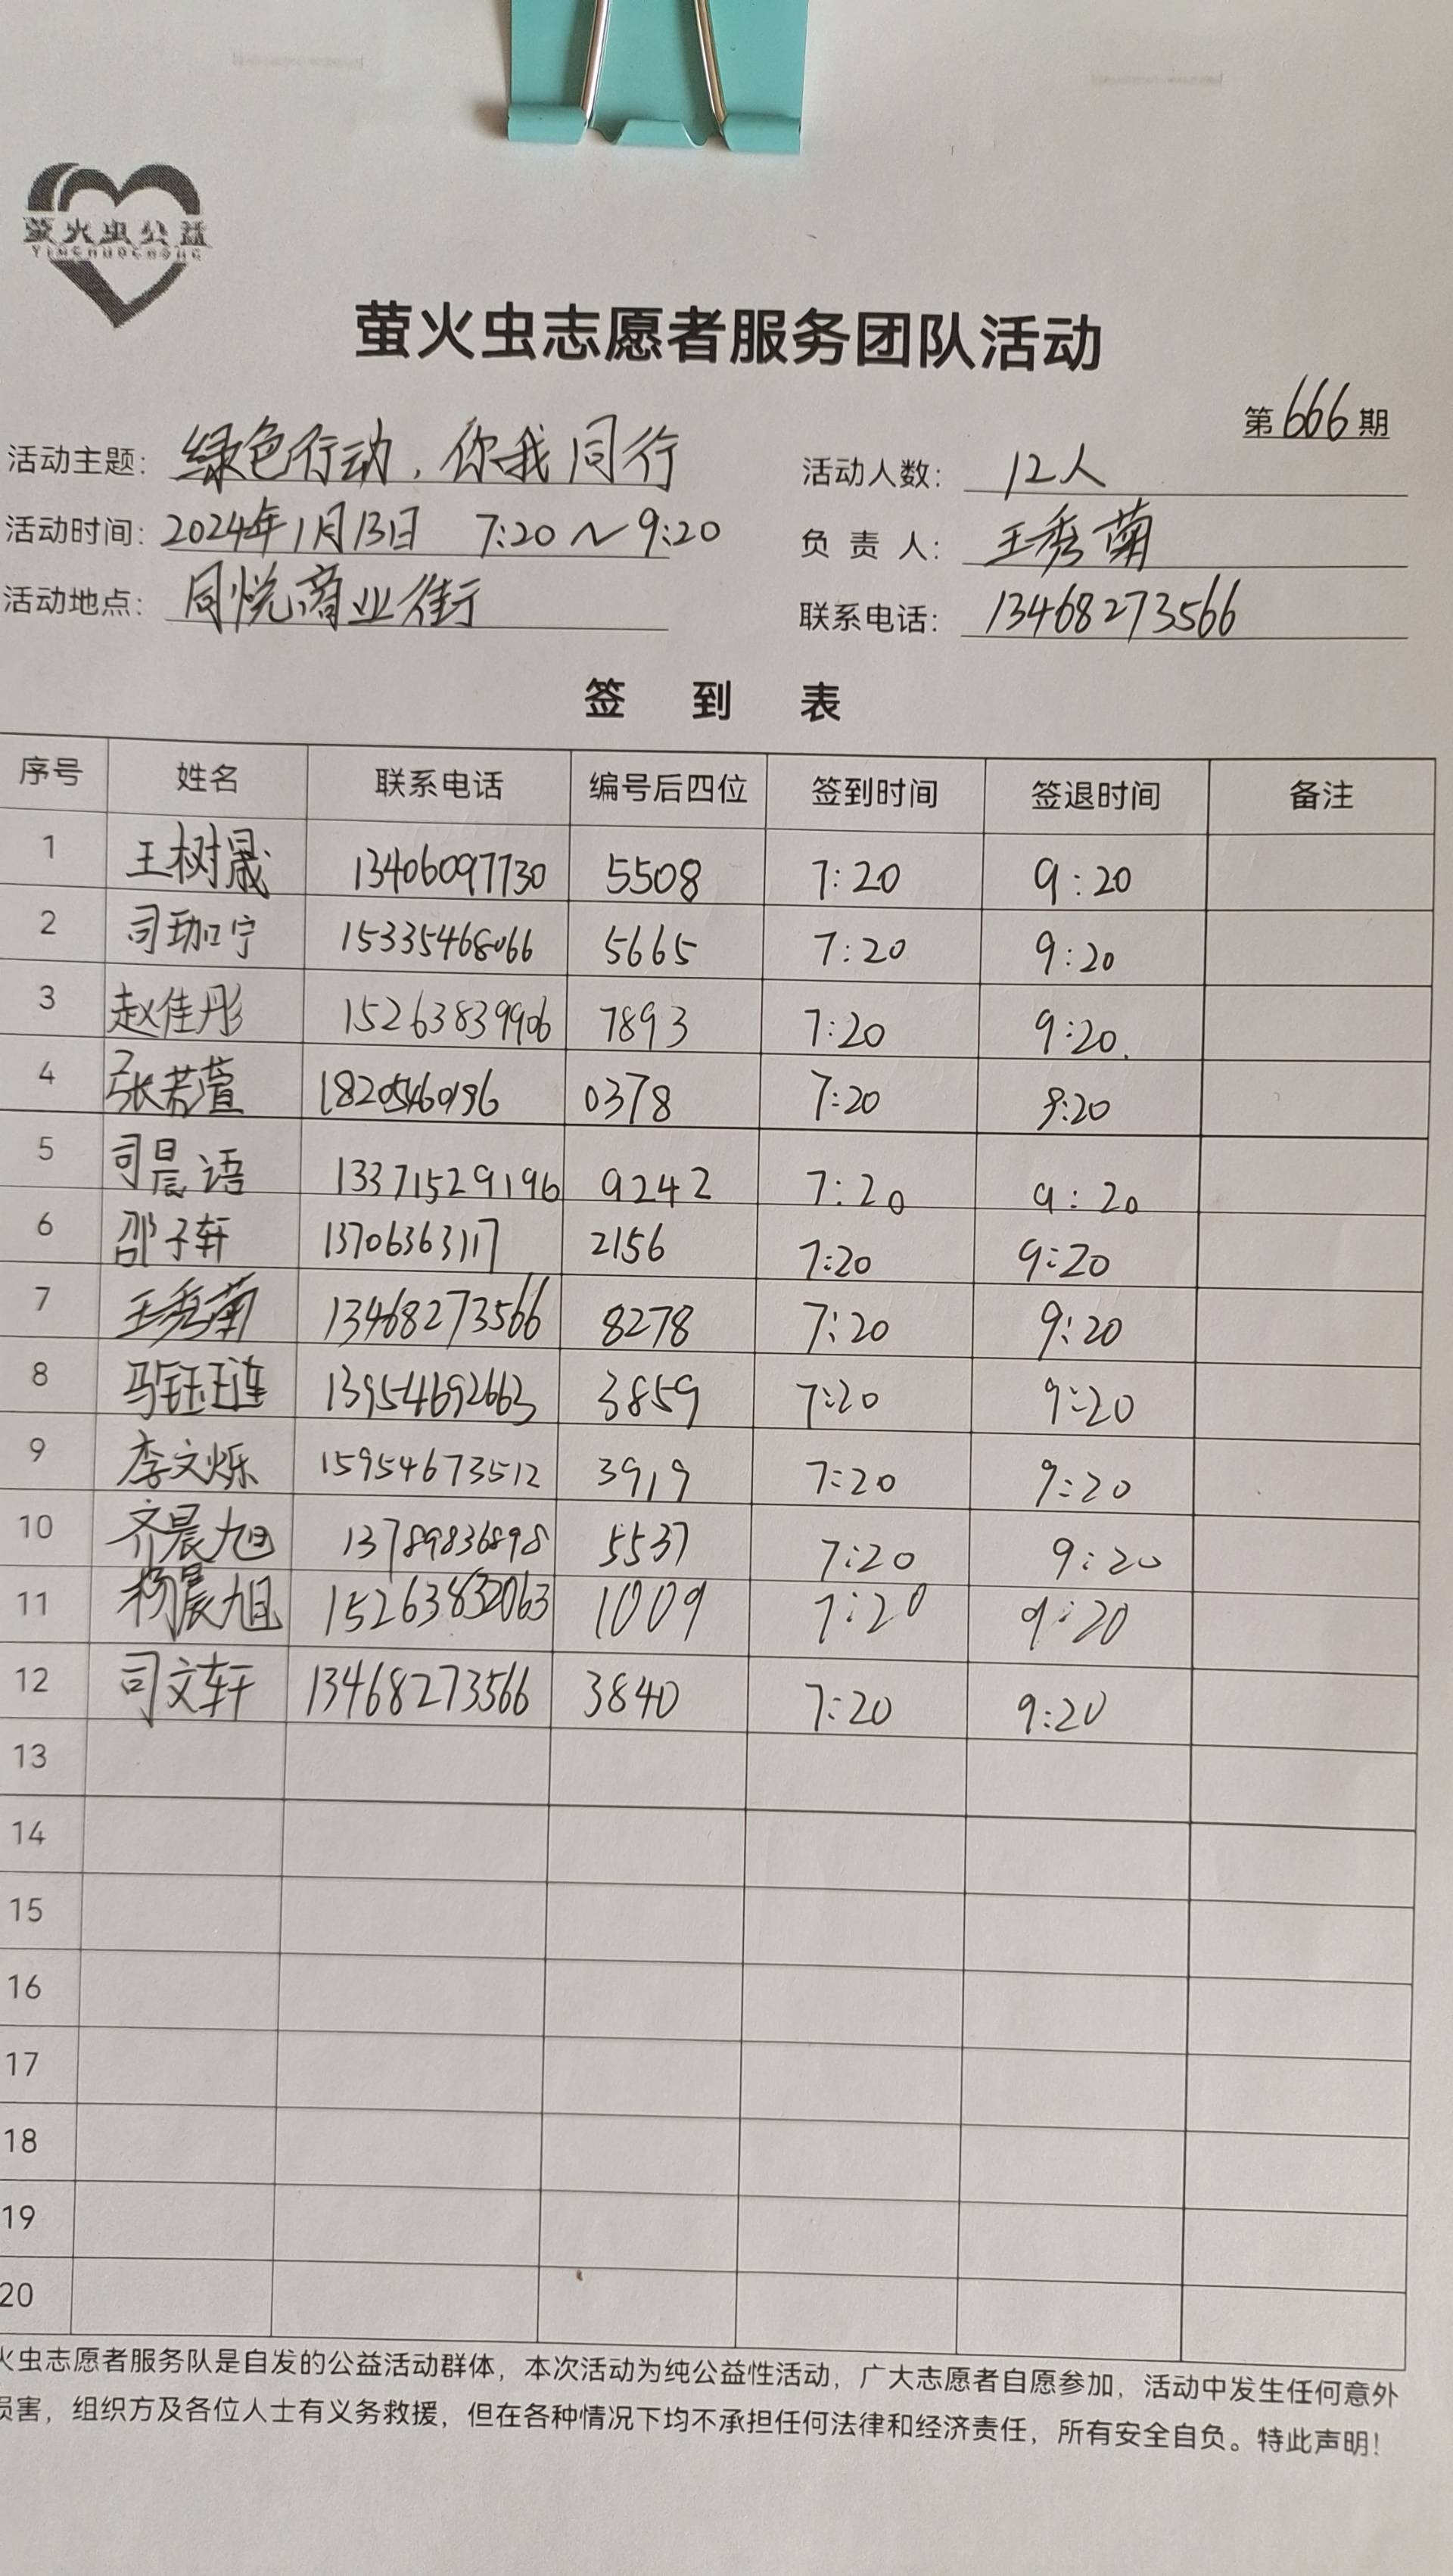 萤火虫公益
YINGHUOCHONG
萤火虫志愿者服务团队活动
第666期
活动主题：绿色行动，你我同行 活动人数：12人
活动时间：2024年1月13日 7:20～9:20 负责人：王秀菊
活动地点：同悦商业街 联系电话：13468273566
签到表
序号 姓名 联系电话 编号后四位 签到时间 签退时间 备注
1 王树晟 13406097730 5508 7:20 9:20
2 司珈宁 15335468066 5665 7:20 9:20
3 赵佳彤 15263839906 7893 7:20 9:20
4 张若萱 18205460196 0378 7:20 9:20
5 司晨语 13371529196 9242 7:20 9:20
6 邵子轩 13706363117 2156 7:20 9:20
7 王秀菊 13468273566 8278 7:20 9:20
8 马钰琏 13954692663 3859 7:20 9:20
9 李文烁 15954673512 3919 7:20 9:20
10 齐晨旭 13789836898 5537 7:20 9:20
11 杨晨旭 15263832063 1009 7:20 9:20
12 司文轩 13468273566 3840 7:20 9:20
13
14
15
16
17
18
19
20
火虫志愿者服务队是自发的公益活动群体，本次活动为纯公益性活动，广大志愿者自愿参加，活动中发生任何意外
损害，组织方及各位人士有义务救援，但在各种情况下均不承担任何法律和经济责任，所有安全自负。特此声明！